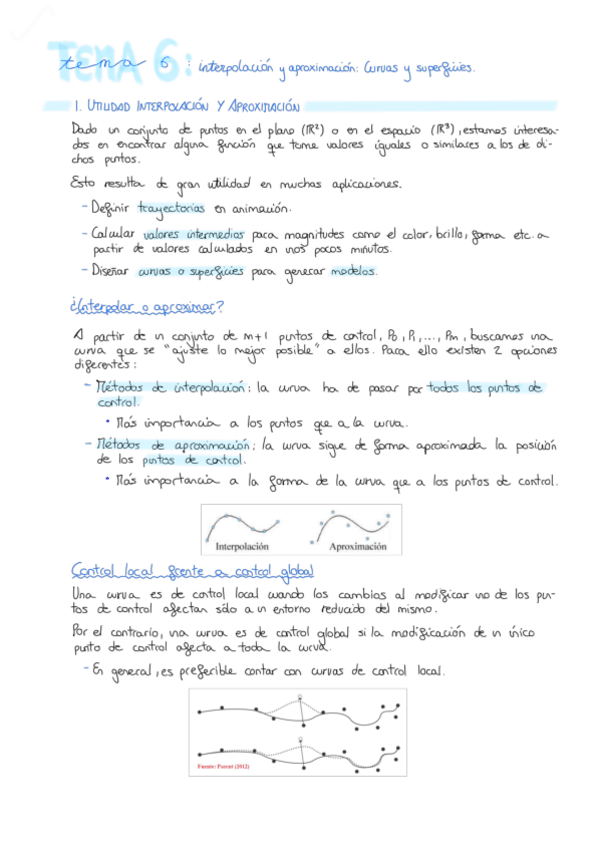 TEMA 6: interpolación y aproximación: Curvas y superficies.
1. UTILIDAD INTERPOLACIÓN Y APROXIMACIÓN
Dado un conjunto de puntos en el plano (ℝ²) o en el espacio (ℝ³), estamos interesa-
dos en encontrar alguna función que tome valores iguales o similares a los de di-
chos puntos.
Esto resulta de gran utilidad en muchas aplicaciones.
- Definir trayectorias en animación.
- Calcular valores intermedios para magnitudes como el color, brillo, forma etc. a
partir de valores calculados en unos pocos minutos.
- Diseñar curvas o superficies para generar modelos.
¿Interpolar o aproximar?
A partir de un conjunto de m+1 puntos de control, P0, P1, ..., Pm, buscamos una
curva que se "ajuste lo mejor posible" a ellos. Para ello existen 2 opciones
diferentes:
- Métodos de interpolación: la curva ha de pasar por todos los puntos de
control.
• Más importancia a los puntos que a la curva.
- Métodos de aproximación: la curva sigue de forma aproximada la posición
de los puntos de control.
• Más importancia a la forma de la curva que a los puntos de control.
Interpolación Aproximación
Control local frente a control global
Una curva es de control local cuando los cambios al modificar uno de los pun-
tos de control afectan sólo a un entorno reducido del mismo.
Por el contrario, una curva es de control global si la modificación de un único
punto de control afecta a toda la curva.
- En general, es preferible contar con curvas de control local.
Fuente: Parent (2012)